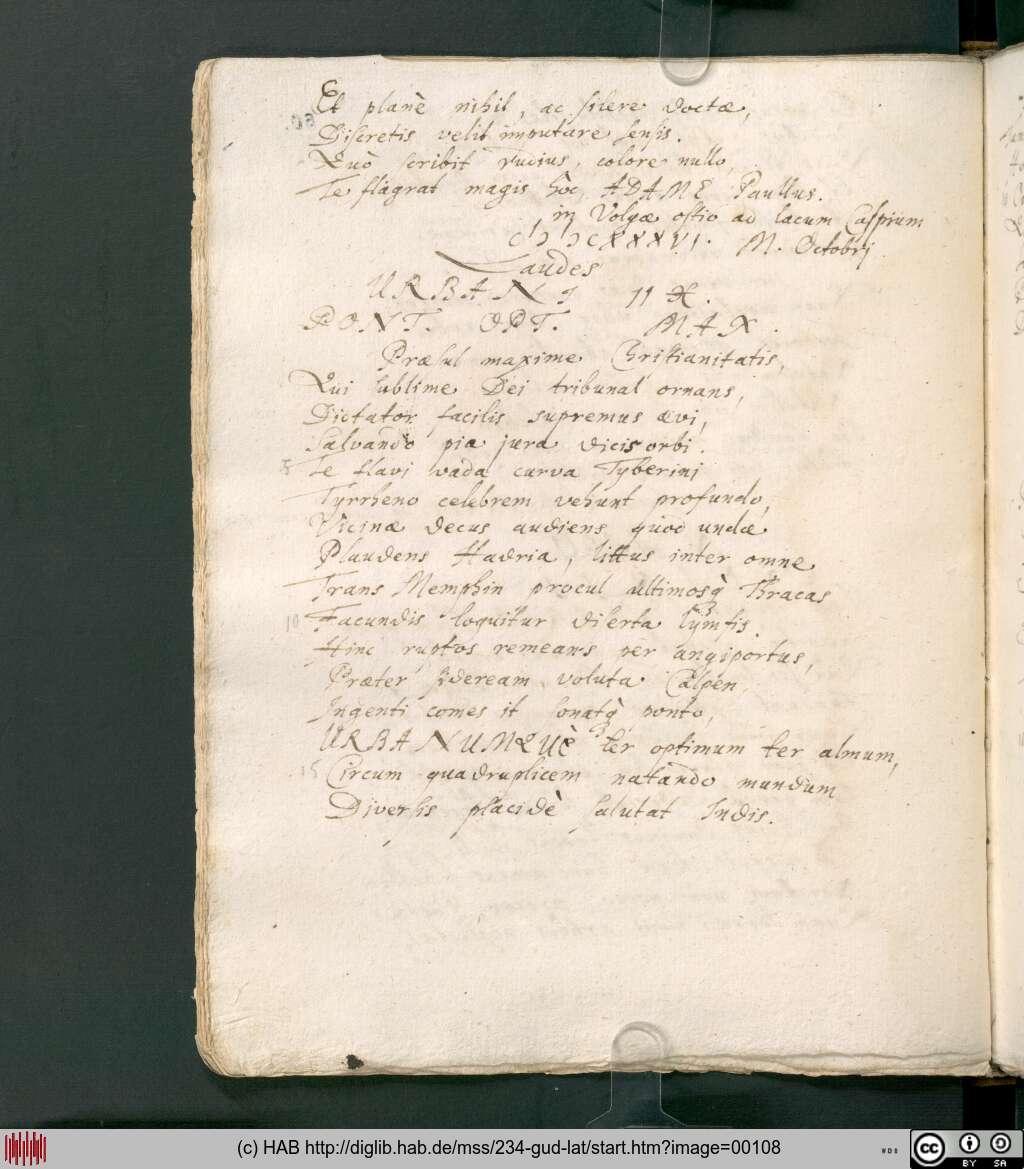 Et planè nihil, ac silere doctæ,
Discretis velit imputare sensis.
Quò scribit rudius, colore nullo,
Te flagrat magis hôc, ADAME Paullus.
in Volgæ ostio ad lacum Caspium
CIↃ IↃCXXXVI. M. Octobrj
Laudes
URBANI IIX.
PONT. OPT. MAX.
Præsul maxime Christianitatis,
Qui sublime Dei tribunal ornans,
Dictator facilis supremus ævi,
Salvando pia jura dicis orbi.
5 Te flavi vada curva Tyberini
Tyrrheno celebrem vehunt profundo,
Vicinæ decus audiens quod undæ
Plaudens Hadria, littus inter omne
Trans Memphin procul ultimosq̀ Thracas
10 Facundis loquitur diserta lymfis.
Hinc ruptos remeans per angiportus,
Præter sideream voluta Calpen,
Ingenti comes it sonatq̀ ponto,
URBANUMQUÈ ter optimum ter almum,
15 Circum quadruplicem natando mundum
Diversis placidè salutat Indis.
(c) HAB http://diglib.hab.de/mss/234-gud-lat/start.htm?image=00108
cc BY SA